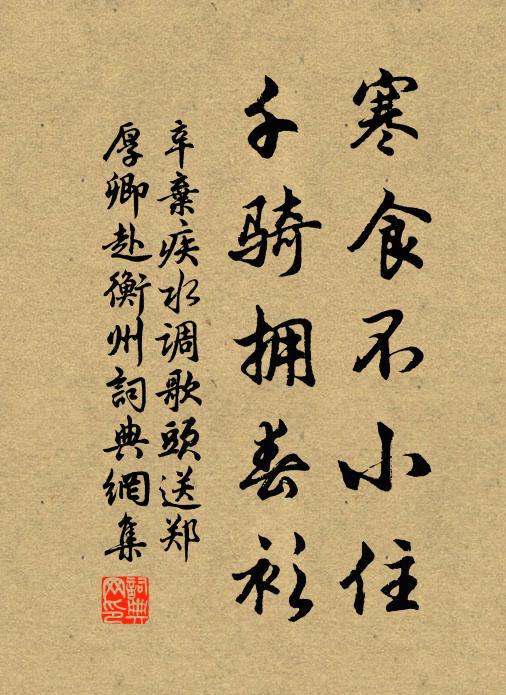 寒食不小住
千骑拥春衫
辛棄疾水调歌頭送郑
厚卿赴衡州詞典網集